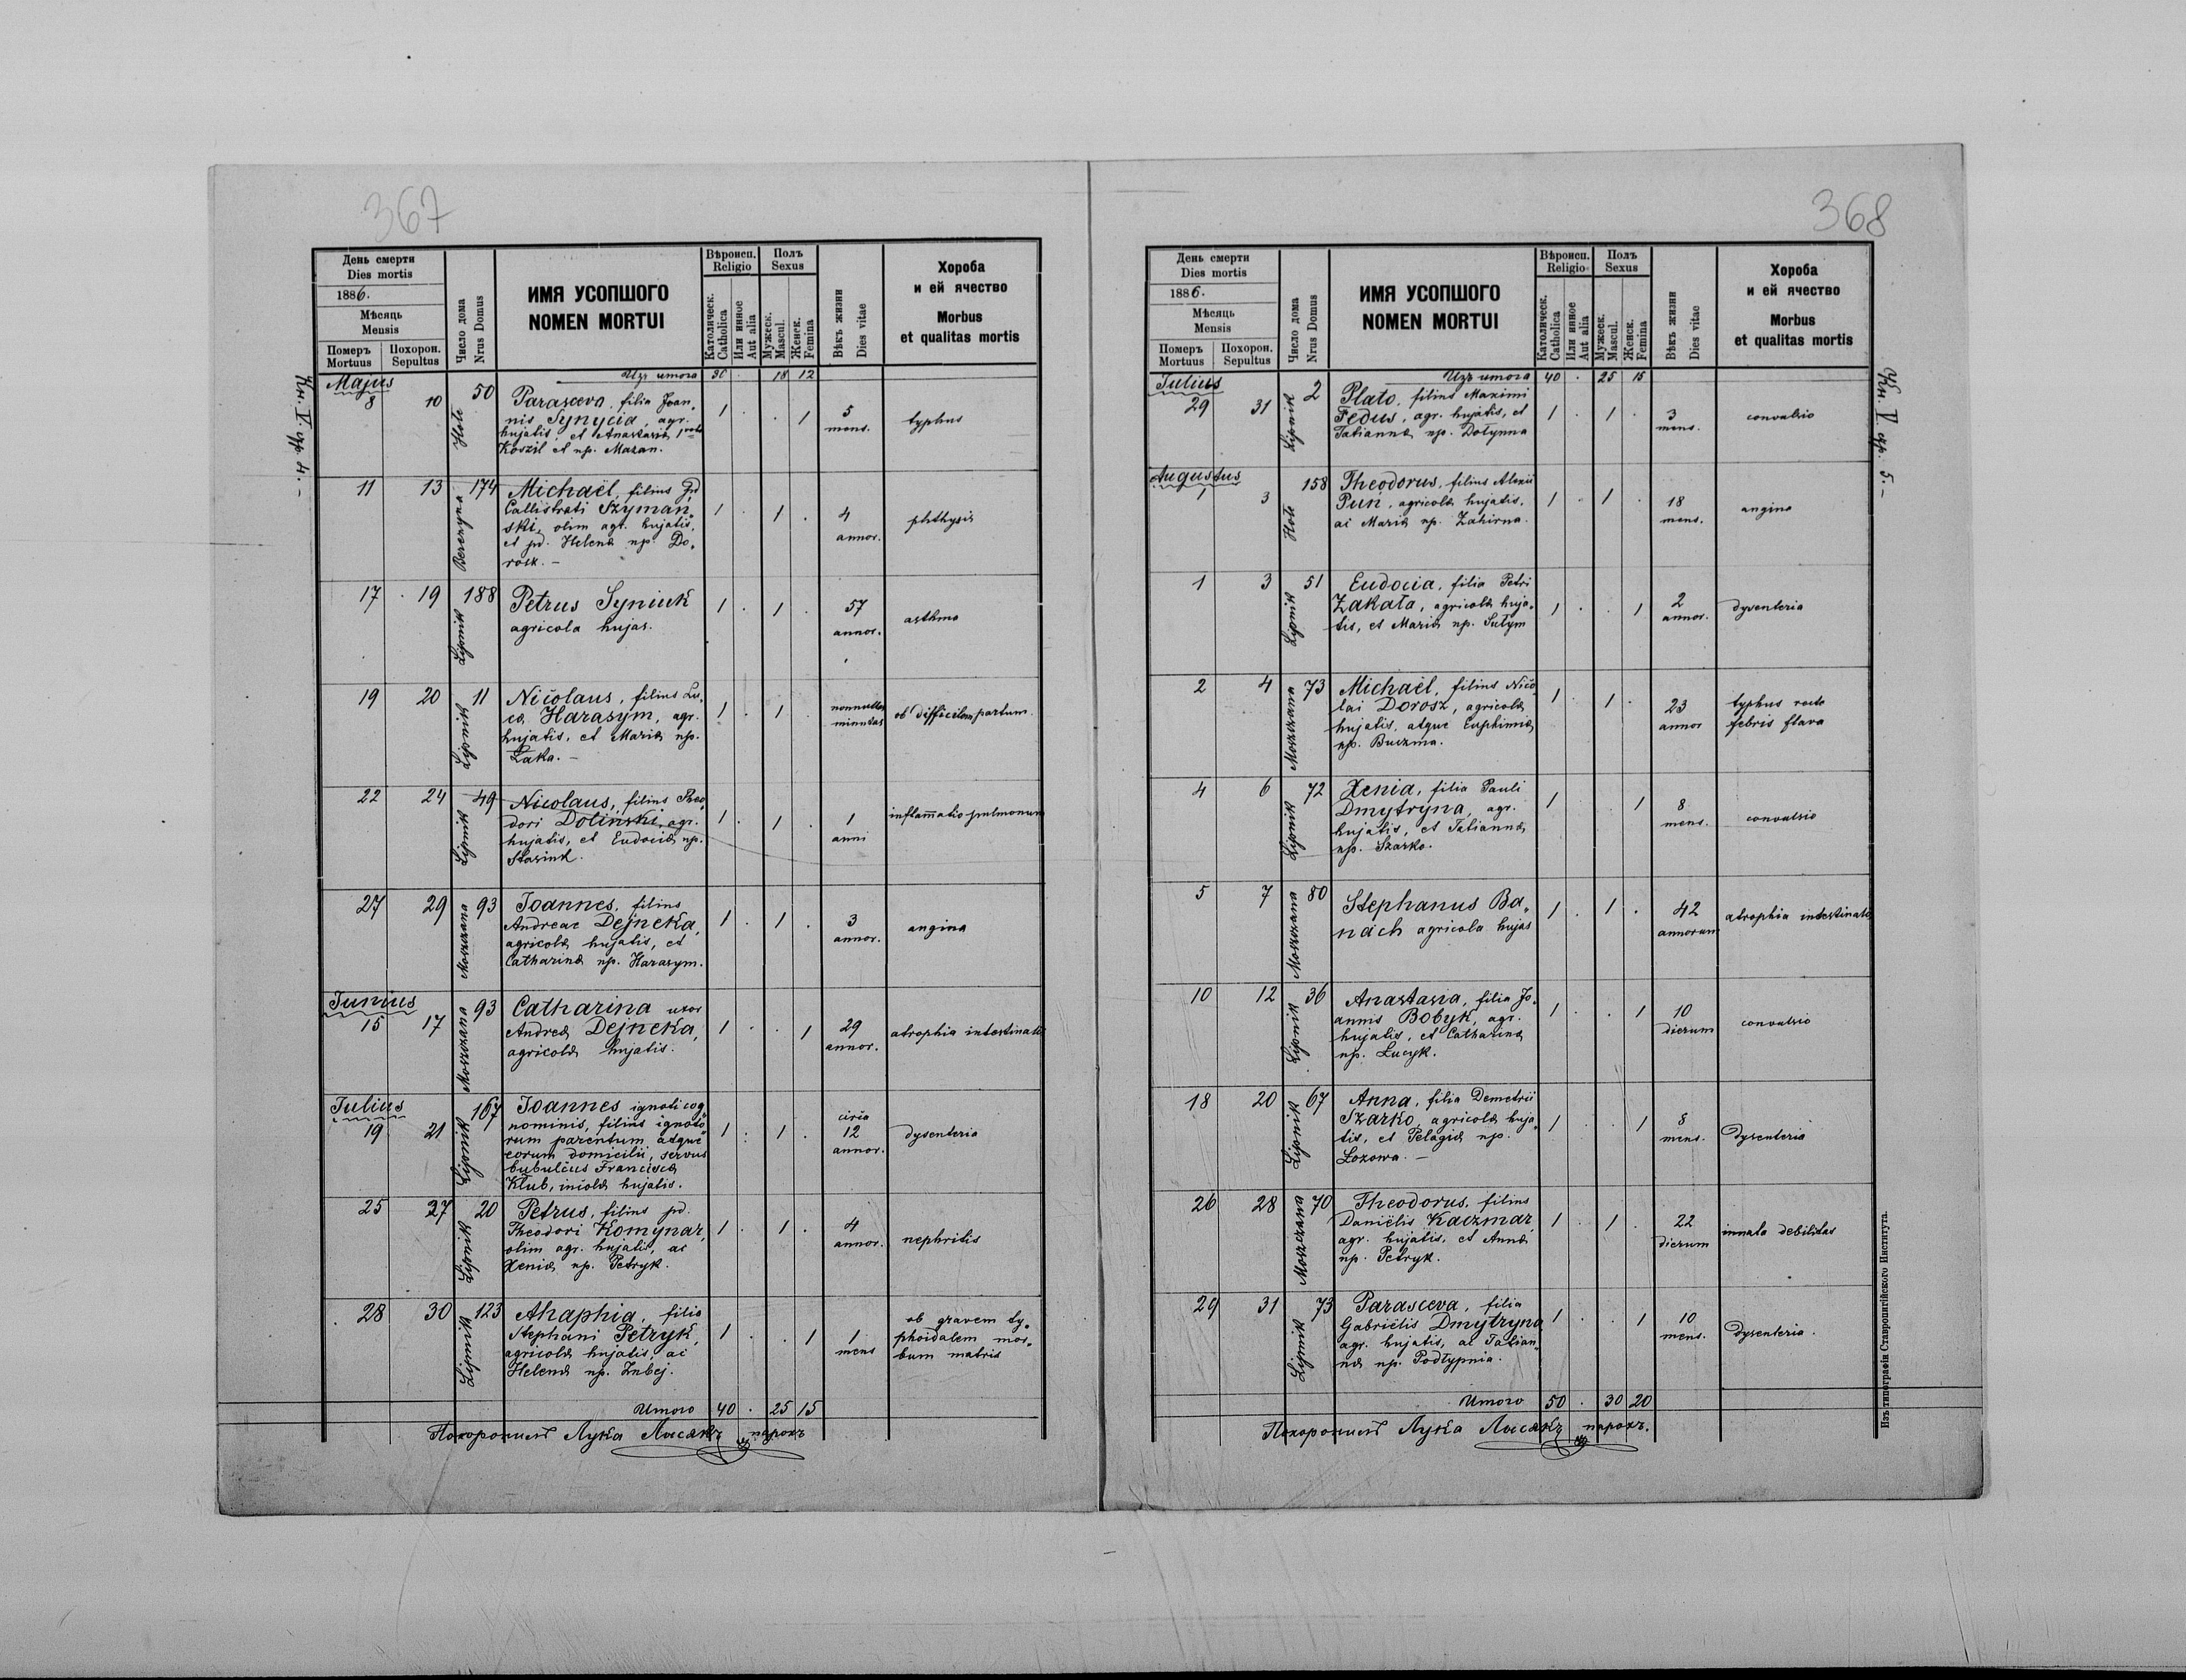 367
День смерти
Dies mortis
1886.
Мѣсяць
Mensis
Померъ
Mortuus
Похорон.
Sepultus
Число дома
Nrus Domus
ИМЯ УСОПШОГО
NOMEN MORTUI
Вѣроисп.
Religio
Католическ.
Catholica
Или инное
Aut alia
Полъ
Sexus
Мужеск.
Mascul.
Женск.
Femina
Вѣкъ жизни
Dies vitae
Хороба
и ей ячество
Morbus
et qualitas mortis
Кн. V. стр. 4. –
Изъ итога 30 . 18 12
Majus
8 10 Hole 50 1 . . 1 5 mens. typhus
Parasceva, filia Joan„
nis Synycia, agr.
hujatis, et Anastasiæ
Koszil et np. Mazan.
11 13 Berezyna 174 1 . 1 . 4 annor. phthysis
Michaël, filius pd
Callistrati Szyman„
ski, olim agr. hujatis,
et pd. Helenæ np. Do„
rosz. –
17 19 Lipnik 188 1 . 1 . 57 annor. asthma
Petrus Syniuk
agricola hujas.
19 20 Lipnik 11 1 . 1 . nonnullas minutas ob difficilem partum
Nicolaus, filius Lu„
cæ Harasym, agr.
hujatis, et Mariæ np.
Łaka. –
22 24 Lipnik 49 1 . 1 . 1 anni inflam̄atio pulmonum
Nicolaus, filius Theo„
dori Doliński, agr.
hujatis, et Eudociæ np.
Stasiuk.
27 29 Moszczana 93 1 . 1 . 3 annor. angina
Joannes, filius
Andreae Dejneka,
agricolæ hujatis, et
Catharinæ np. Harasym.
Junius
15 17 Moszczana 93 1 . . 1 29 annor. atrophia intestinalis
Catharina uxor
Andreæ Dejneka,
agricolæ hujatis.
Julius
19 21 Lipnik 167 1 . 1 . circa 12 annor. dysenteria
Joannes ignoti cog„
nominis, filius ignoto„
rum parentum atque
eorum domicilii, servus
bubulcus Franciscæ
Kłub, incolæ hujatis.
25 27 Lipnik 20 1 . 1 . 4 annor. nephritis
Petrus, filius pd.
Theodori Komynar,
olim agr. hujatis, ac
Xeniæ np. Petryk.
28 30 Lipnik 123 1 . . 1 1 mens ob gravem ty„
phoidalem mor„
bum matris
Ahaphia, filia
Stephani Petryk,
agricolæ hujatis, ac
Helenæ np. Zubej.
Итого 40 . 25 15
Похоронилъ Лука Лисакъ парохъ
368
День смерти
Dies mortis
1886.
Мѣсяць
Mensis
Померъ
Mortuus
Похорон.
Sepultus
Число дома
Nrus Domus
ИМЯ УСОПШОГО
NOMEN MORTUI
Вѣроисп.
Religio
Католическ.
Catholica
Или инное
Aut alia
Полъ
Sexus
Мужеск.
Mascul.
Женск.
Femina
Вѣкъ жизни
Dies vitae
Хороба
и ей ячество
Morbus
et qualitas mortis
Кн. V. стр. 5. –
Изъ итога 40 . 25 15
Julius
29 31 Lipnik 2 1 . 1 . 3 mens. convulsio
Plato, filius Maximi
Feduś, agr. hujatis, et
Tatiannæ np. Dołynna
Augustus
1 3 Hole 158 1 . 1 . 18 mens. angina
Theodorus, filius Alexii
Puń, agricolæ hujatis,
ac Mariæ np. Zahirna.
1 3 Lipnik 51 1 . . 1 2 annor. dysenteria
Eudocia, filia Petri
Zakała, agricolæ huja„
tis, et Mariæ np. Sułym
2 4 Moszczana 73 1 . 1 . 23 annor typhus recte
febris flava
Michaël, filius Nico„
lai Dorosz, agricolæ
hujatis, atque Euphimiæ
np. Buczma.
4 6 Lipnik 72 1 . . 1 8 mens. convulsio
Xenia, filia Pauli
Dmytryna, agr.
hujatis, et Tatiannæ
np. Szarko.
5 7 Moszczana 80 1 . 1 . 42 annorum atrophia intestinalis
Stephanus Ba„
nach agricola hujas
10 12 Lipnik 36 1 . . 1 10 dierum convulsio
Anastasia, filia Jo„
annis Bobyk, agr.
hujatis, et Catharinæ
np. Łucyk.
18 20 Lipnik 67 1 . . 1 8 mens. dysenteria
Anna, filia Demetrii
Szarko, agricolæ huja„
tis, et Pelagiæ np.
Łozowa. –
26 28 Moszczana 70 1 . 1 . 22 dierum innata debilitas
Theodorus, filius
Daniëlis Kaczmar,
agr. hujatis, et Annæ
np. Petryk.
29 31 Lipnik 73 1 . . 1 10 mens. dysenteria.
Parasceva, filia
Gabriëlis Dmytryna
agr. hujatis, ac Tatian„
næ np. Podłypnia.
Итого 50 . 30 20
Похоронилъ Лука Лисакъ парохъ.
Изъ типографіи Ставропигійского Института.